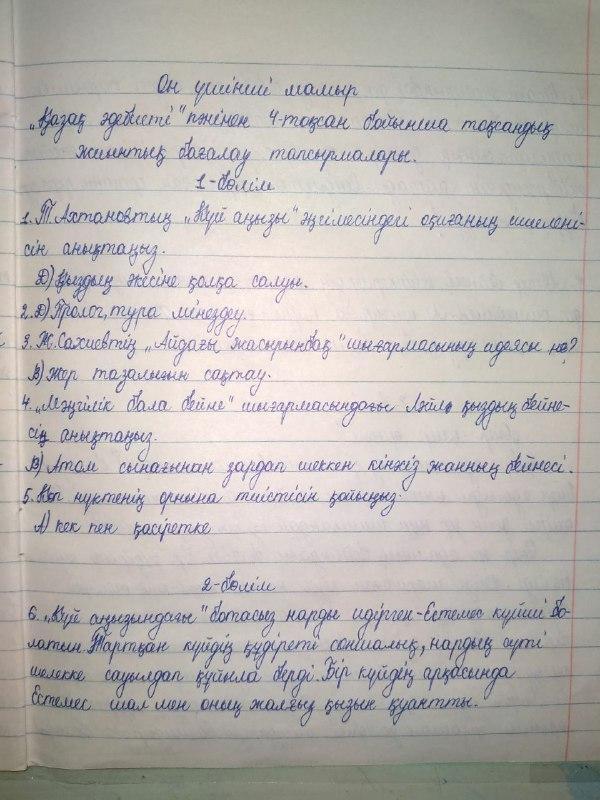 Он үшінші мамыр
„Қазақ әдебиеті" пәнінен 4-тоқсан бойынша тоқсандық
жиынтық бағалау тапсырмалары.
1-бөлім
1. Т. Ахтановтың „Күй аңызы" әңгімесіндегі оқиғаның шиелені-
сін анықтаңыз.
Д) Қыздың әкесіне қолқа салуы.
2. Д) Пролог, тура мінездеу.
3. Ж. Сахиевтің „Айдағы жасырынбақ" шығармасының идеясы не?
В) жер тазалығын сақтау.
4. „Мәңгілік бала бейне" шығармасындағы Ләйлә қыздың бейне-
сін анықтаңыз.
В) Атом сынағынан зардап шеккен кінәсіз жанның бейнесі.
5. Көп нүктенің орнына тиістісін қойыңыз.
А) кек пен қасіретке
2-бөлім
6. „Күй аңызындағы" ботасыз нарды идірген - Естемес күйші бо-
латын. Тартқан күйдің құдіреті соншалық, нардың сүті
шелекке сауылдап құйыла берді. Бір күйдің арқасында
Естемес шал мен оның жалғыз қызын қуантты.